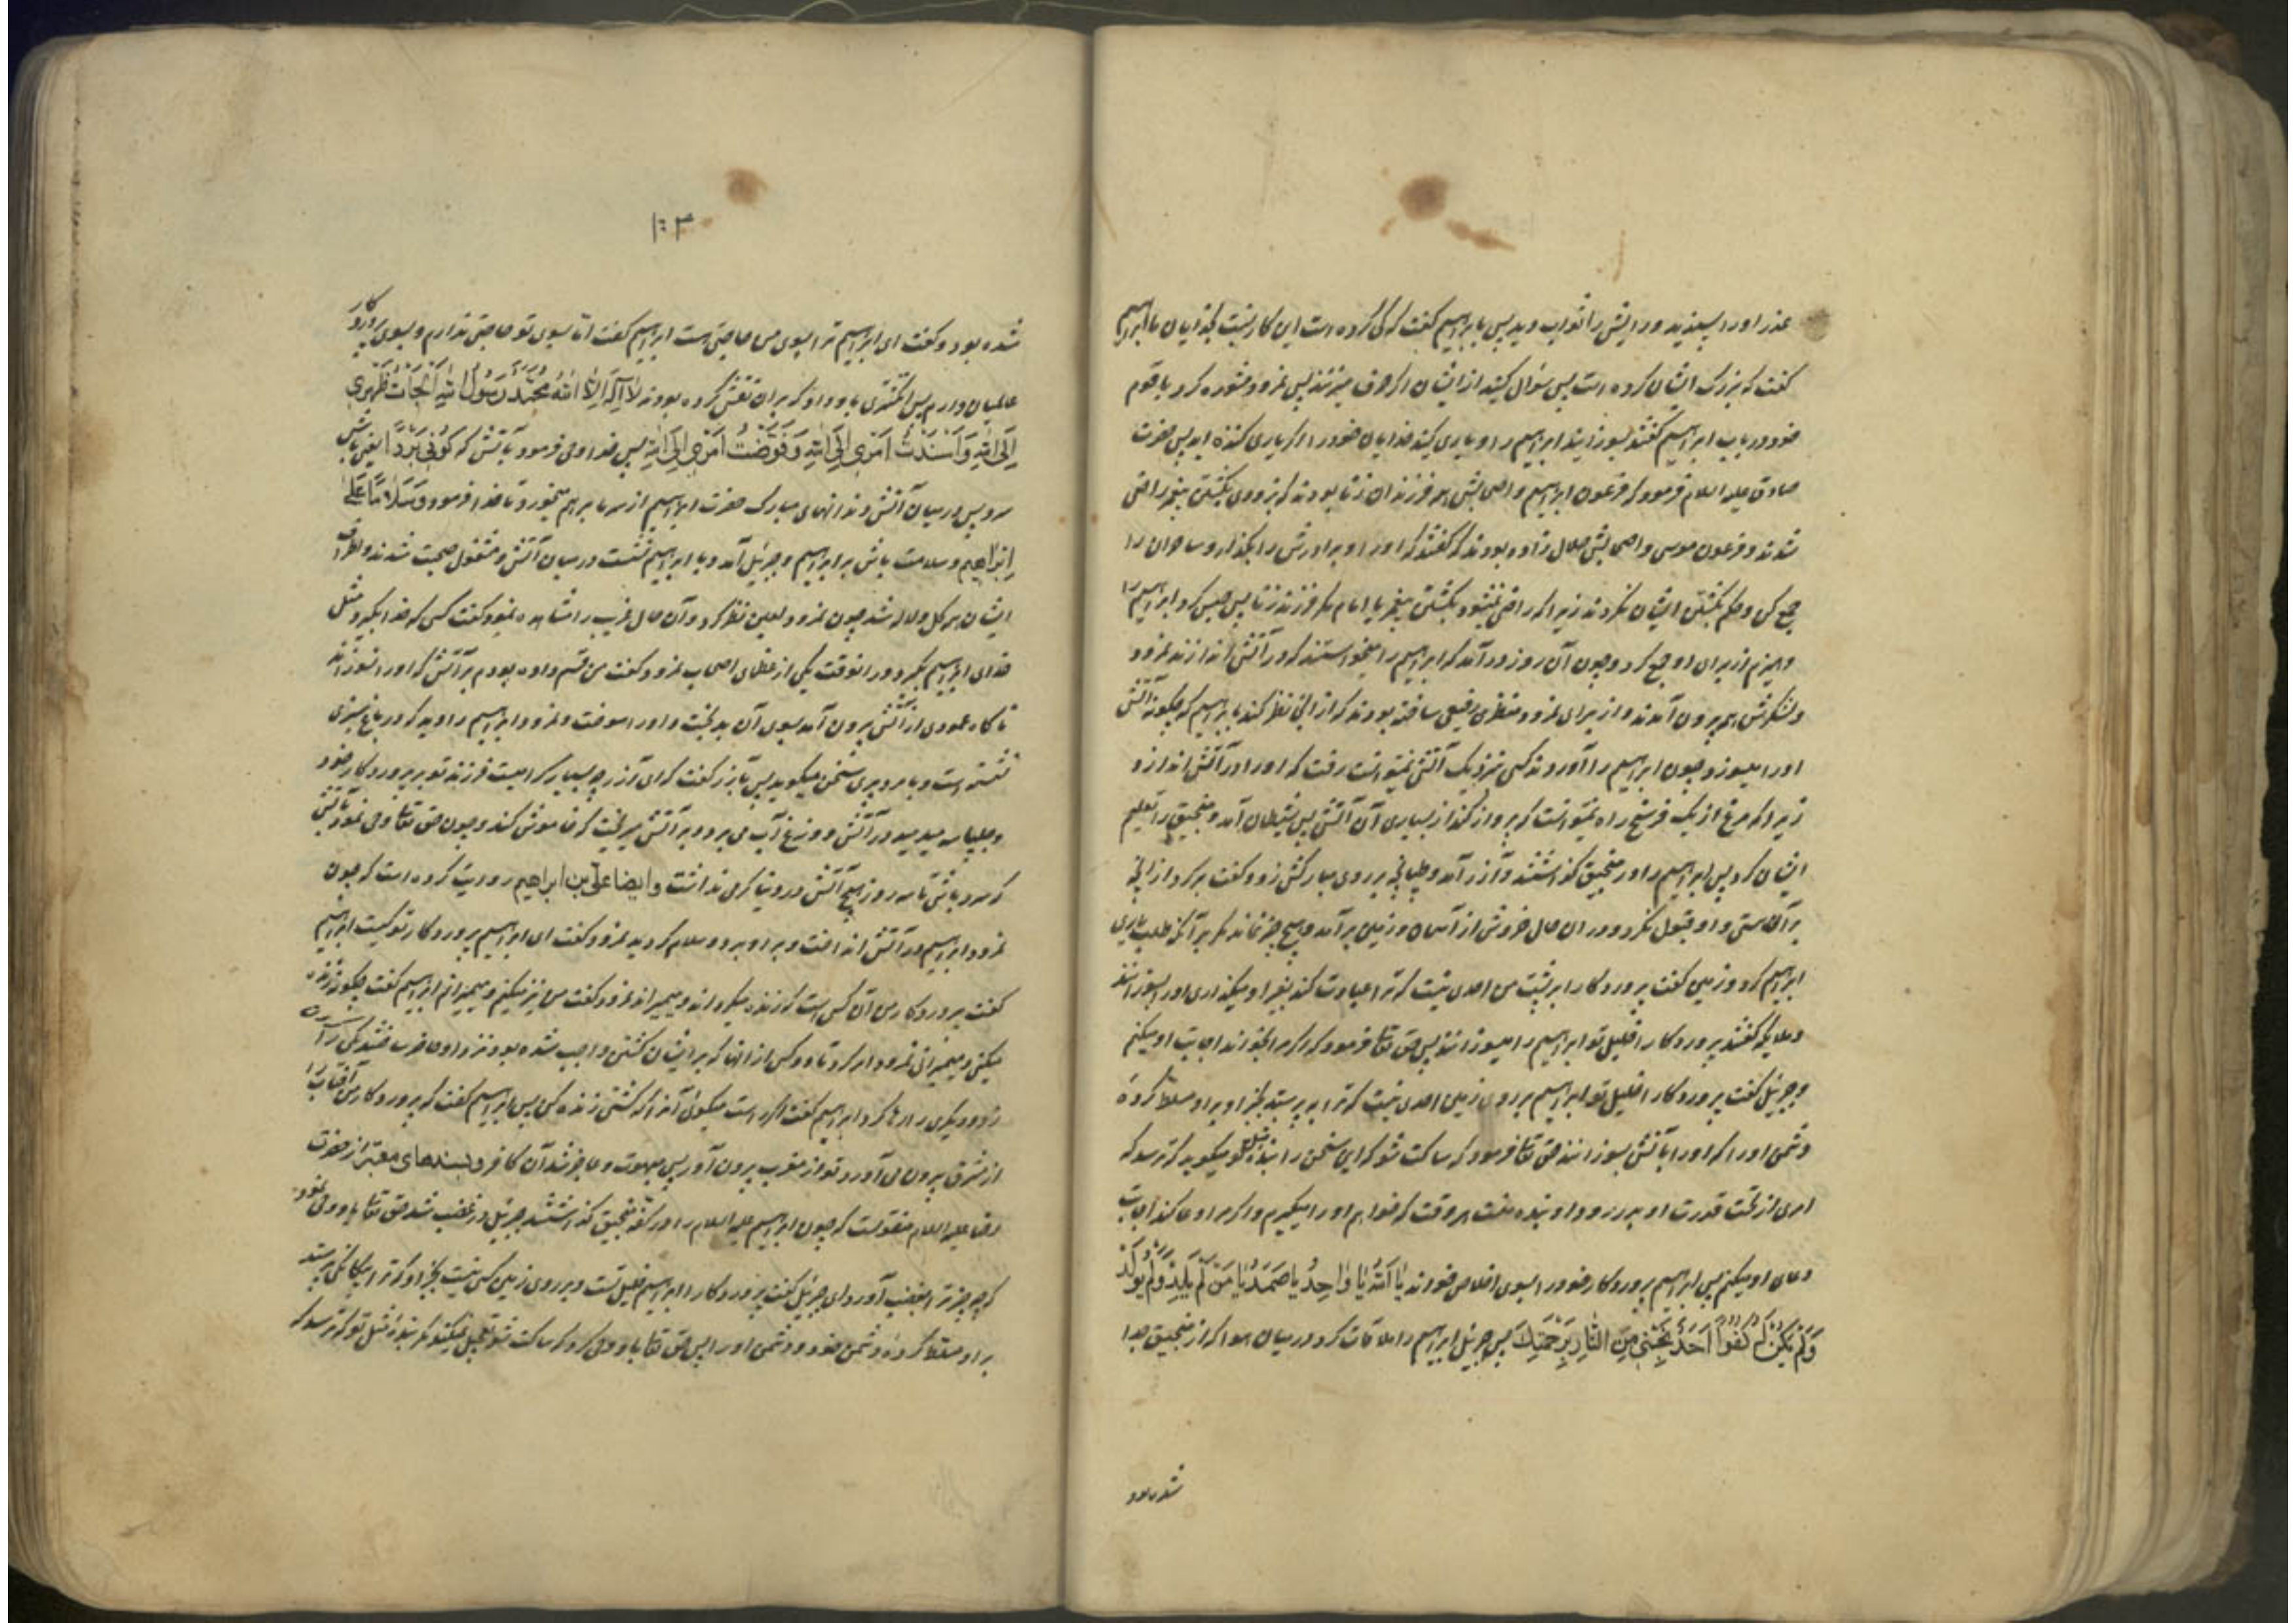 عذر او را پسندید و رایش را ثواب دید پس بابرهیم گفت که کی کرده است این کار نسبت بخدایان ما ابرهیم
گفت که بزرک ایشان کرده است پس سؤال کنید از ایشان اکر حرف میزنند پس نمرود مشوره کرد با قوم
خود در باب ابرهیم گفتند بسوزانید ابرهیم را و یاری کنید خدایان خود را اکر یاری کننده اید پس حضرت
صادق علیه السلام فرمود که فرعون ابرهیم و اصحابش همه فرزندان زنا بودند که بزودی بکشتن پیغمبر راضی
شدند و فرعون موسی و اصحابش حلال زاده بودند که گفتند که او را و برادرش را بکذار و ساحران را
جمع کن و حکم بکشتن ایشان نکردند زیرا که راضی نمیشود بکشتن پیغمبر یا امام مکر فرزند زنا پس حبس کرد ابرهیم را
و هیزم از برای او جمع کرد و چون آن روز درآمد که ابرهیم را میخواستند که در آتش اندازند نمرود
و لشکرش همه بیرون آمدند و از برای نمرود منظری رفیعی ساخته بودند که از انجا نظر کند بابرهیم که چکونه آتش
او را میسوزد و چون ابرهیم را آوردند کسی نزدیک آتش نمیتوانست رفت که او را در آتش اندازد
زیرا که مرغ از یک فرسخ راه نمیتوانست که پرواز کند از بسیاری آن آتش پس شیطان آمد و منجنیق را تعلیم
ایشان کرد پس ابرهیم را در منجنیق کذاشتند و آزر آمد و طپانچه بر روی مبارکش زد و گفت برکرد از انچه
بر آن هستی و او قبول نکرد و در ان حال خروش از آسمان و زمین برآمد و هیچ چیز نماند مکر برآنکه طلب یاری
ابرهیم کرد و زمین گفت پروردکارا بر پشت من احدی نیست که ترا عبادت کند بغیر او میکذاری او را بسوزانند
و ملایکه گفتند پروردکارا خلیل تو ابرهیم را میسوزانند پس حق تعا فرمود که اکر مرا بخواند اجابت او میکنم
و جبرئیل گفت پروردکارا خلیل تو ابرهیم بر روی زمین احدی نیست که ترا بپرستد بجز او بر او مسلط کردهٔ
دشمن او را که او را بآتش بسوزانند حق تعا فرمود که ساکت شو که این سخن را بندهٔ مثل تو میکوید که ترسد که
امری از تحت قدرت او بدر رود او بندهٔ منست هر وقت که خواهم او را میکیرم و اکر مرا دعا کند اجابت
دعای او میکنم پس ابرهیم پروردکار خود را بسوی اخلاص خواند یا اَللّٰهُ یا واحِدُ یا صَمَدُ یا مَنْ لَمْ یَلِدْ وَلَمْ یُولَدْ
وَلَمْ یَکُنْ لَهُ کُفُوًا اَحَدٌ نَجِّنی مِنَ النّارِ بِرَحْمَتِکَ پس جبرئیل ابرهیم را ملاقات کرد در میان هوا که از منجنیق جدا
شده بود
۱۰۳
شده بود و گفت ای ابرهیم ترا بسوی من حاجتی هست ابرهیم گفت امّا بسوی تو حاجتی ندارم و بسوی پروردکار
عالمیان دارم پس انکشتری باو داد که بران نقش کرده بودند لا اِلٰهَ اِلَّا اللّٰهُ مُحَمَّدٌ رَسُولُ اللّٰهِ اَلْجَأْتُ ظَهْرِی
اِلَی اللّٰهِ وَ اَسْنَدْتُ اَمْرِی اِلَی اللّٰهِ وَ فَوَّضْتُ اَمْرِی اِلَی اللّٰهِ پس خدا وحی فرمود بآتش که کُونی بَرْدًا یعنی باش
سرد پس در میان آتش دندانهای مبارک حضرت ابرهیم از سرما برهم میخورد تا خدا فرمود وَ سَلامًا عَلیٰ
اِبْراهِیمَ و سلامت باش بر ابرهیم و جبرئیل آمد و با ابرهیم نشست در میان آتش و مشغول صحبت شدند و اطراف
ایشان همه کل و لاله شد چون نمرود لعین نظر کرد و آن حال غریب را مشاهده نمود گفت کسی که خدا بکیرد مثل
خدای ابرهیم بکیرد در انوقت یکی از عظمای اصحاب نمرود گفت من قسم داده بودم بر آتش که او را نسوزاند
ناکاه عمودی از آتش بیرون آمد بسوی آن بدبخت و او را سوخت و نمرود ابرهیم را دید که در باغ سبزی
نشسته است و با مرد پیری سخن میکوید پس بآزر گفت که ای آزر چه بسیار کرامیست فرزند تو بر پروردکار خود
و چلپاسه میدمید در آتش و وزغ آب می برد و بر آتش میریخت که خاموش کند و چون حق تعا وحی نمود بآتش
که سرد باش تا سه روز هیچ آتش در دنیا کرمی نداشت و ایضا علی بن ابراهیم روایت کرده است که چون
نمرود ابرهیم در آتش انداخت و بر او برد و سلام کردید نمرود گفت ای ابرهیم پروردکار تو کیست ابرهیم
گفت پروردکار من آن کس است که زنده میکرداند و میمیراند نمرود گفت من نیز میکنم و میمیرانم ابرهیم گفت چکونه زنده
میکنی و میمیرانی نمرود امر کرد تا دو کس از انها که بر ایشان کشتن واجب شده بود نزد او حاضر ساختند یکی را کردن
زد و دیکری را رها کرد ابرهیم گفت اکر راست میکوئی آنرا که کشتی زنده کن پس ابرهیم گفت که پروردکار من آفتاب را
از مشرق بیرون می آورد تو از مغرب بیرون آور پس مبهوت و عاجز شد آن کافر و بسندهای معتبر از حضرت
رضا علیه السلام منقولست که چون ابرهیم علیه السلام را در کفهٔ منجنیق کذاشتند جبرئیل در غضب شد حق تعا باو وحی نمود
که چه چیز ترا بغضب آورد ای جبرئیل گفت پروردکارا ابرهیم خلیل تست و بر روی زمین کسی نیست بجز او که ترا بیکانکی پرستد
بر او مسلط کردهٔ دشمن خود و دشمن او را پس حق تعا باو وحی کرد که ساکت شو تعجیل نمیکند مکر بندهٔ مثل تو که ترسد که